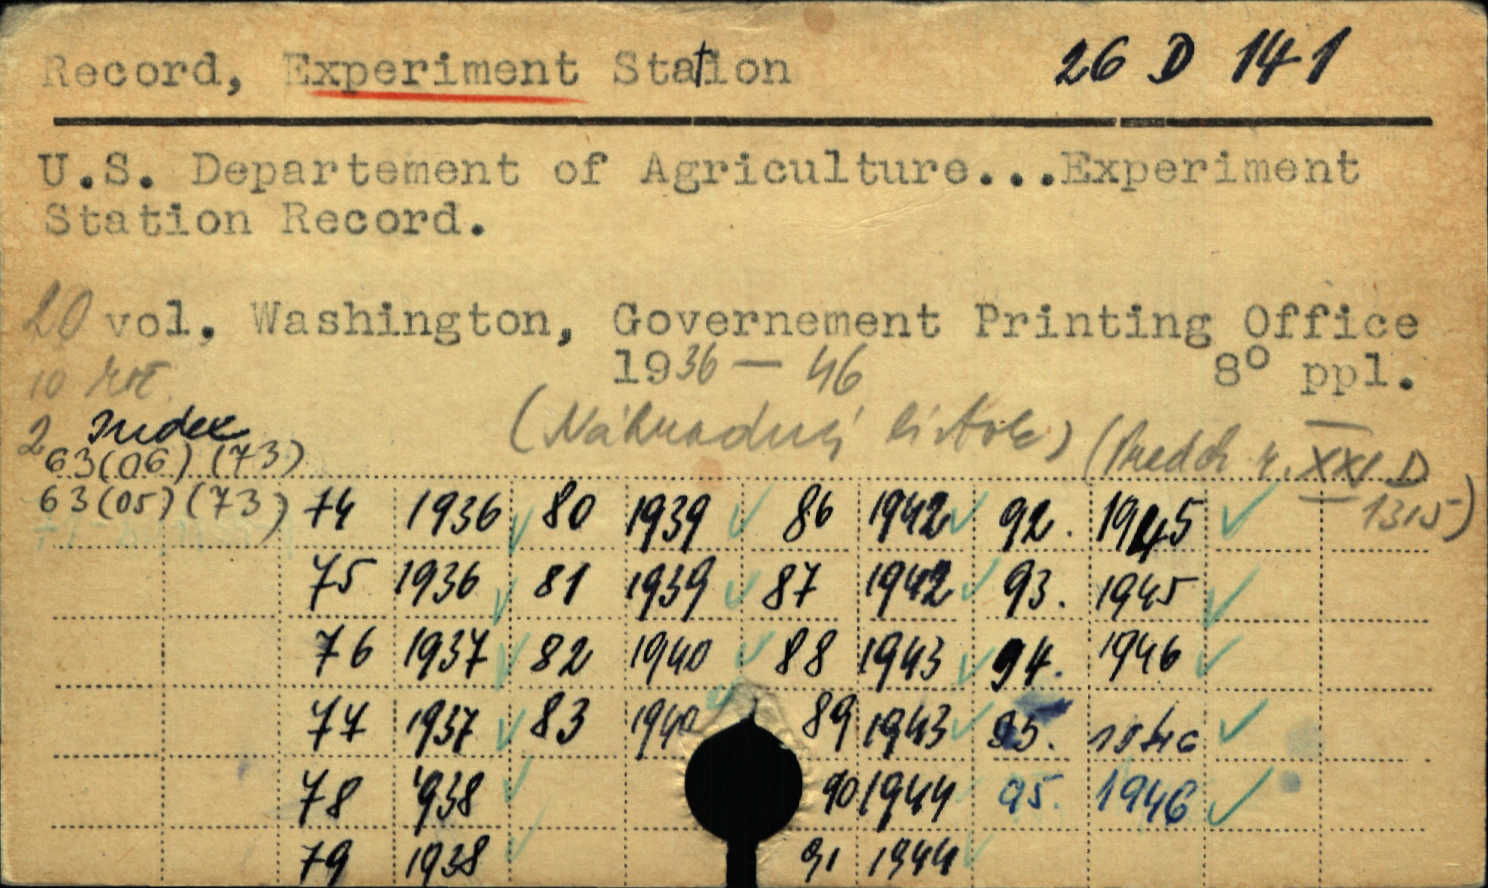 Record, Experiment Station 26 D 141
U.S. Departement of Agriculture...Experiment
Station Record.
20 vol, Washington, Governement Printing Office
1936 — 46 8° ppl.
10 roč.
2 Index (Náhradný lístok) (Predch r. XXI D
63(06) (73) 1315)
63(05) (73) 74 1936 80 1939 86 1942 92. 1945
75 1936 81 1939 87 1942 93. 1945
76 1937 82 1940 88 1943 94. 1946
77 1937 83 1940 89 1943 95. 1946
78 1938 90 1944 95. 1946
79 1938 91 1944